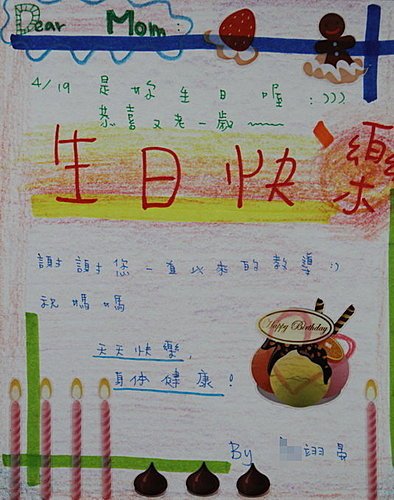 Dear Mom:
4/19 是妳生日喔 :)))
恭喜又老一歲~~~
生日快樂
謝謝您一直以來的教導 :))
祝媽媽
Happy Birthday
天天快樂,
身体健康!
By 翊晏